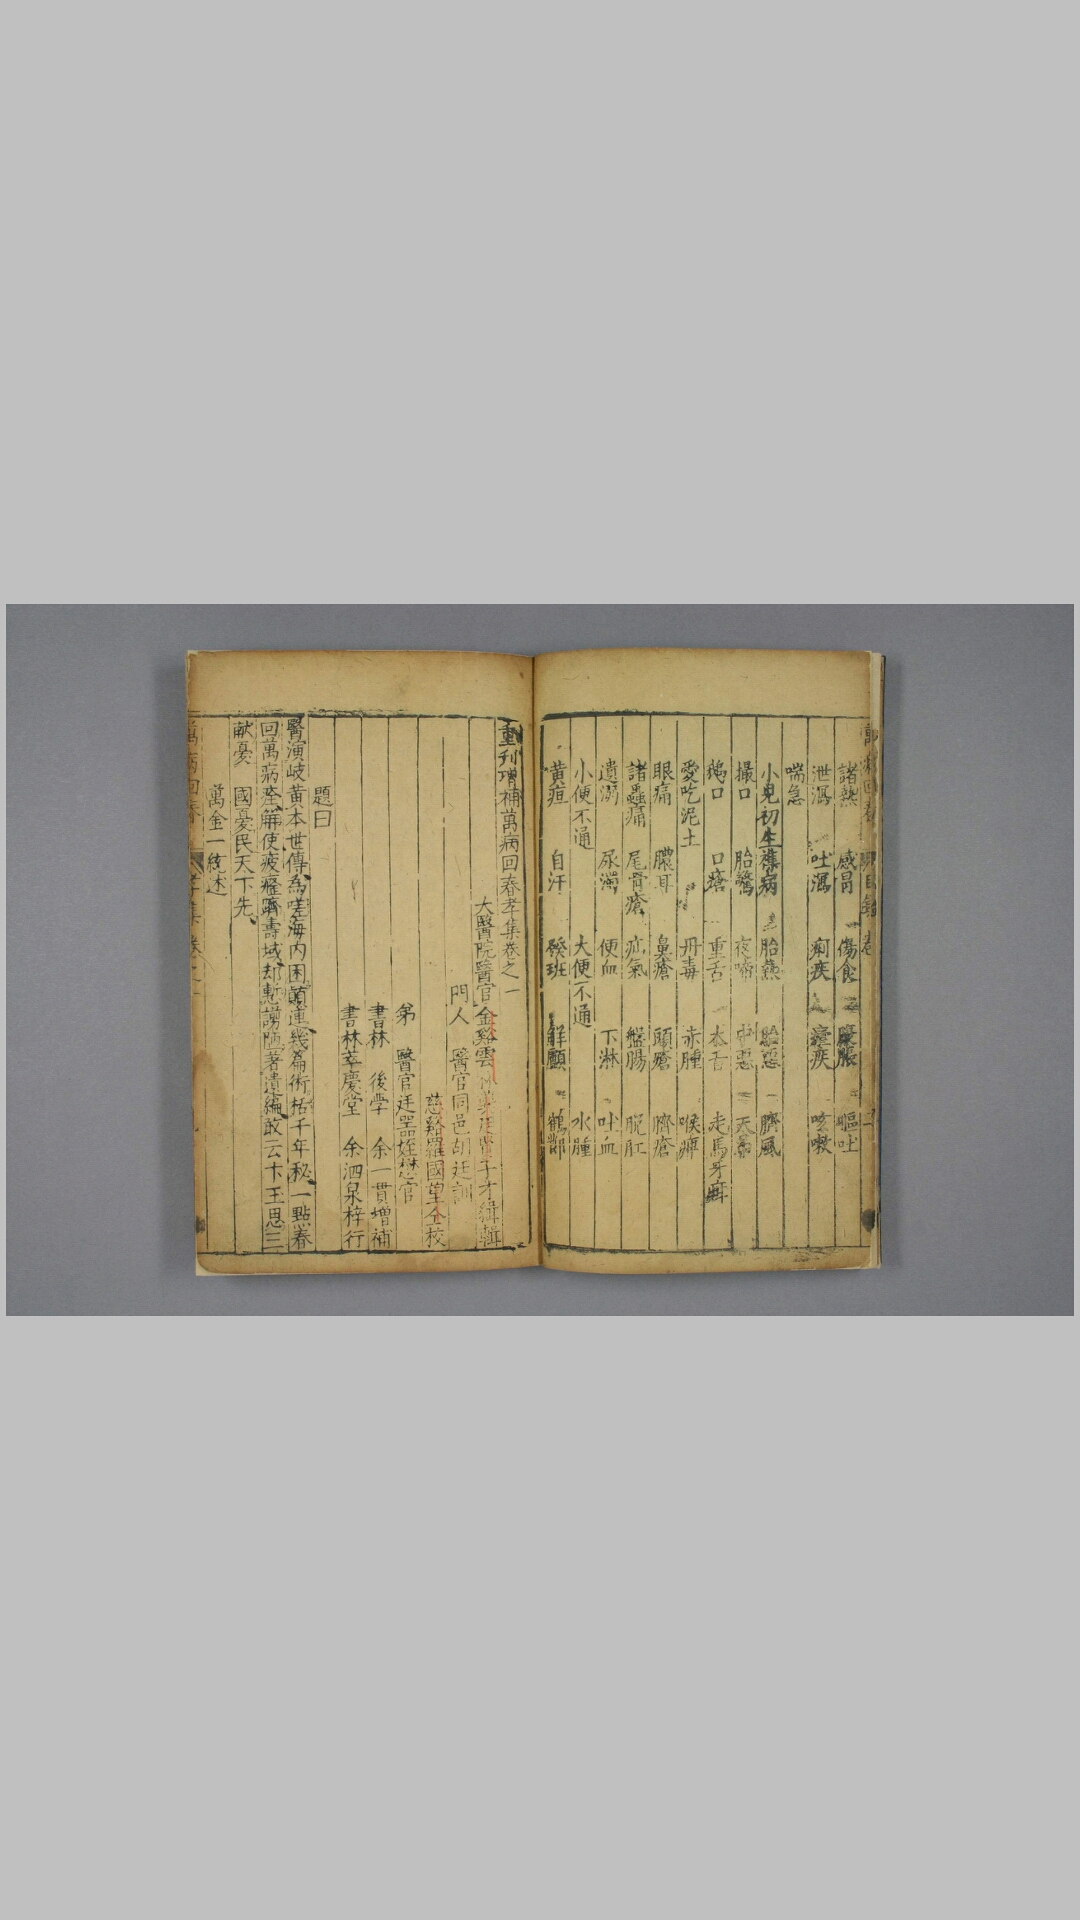 諸熱 感冒 傷食 嘔吐
泄瀉 吐瀉 痢疾 瘧疾 咳嗽
喘急
小兒初生雜病 胎熱 胎惡 臍風
撮口 胎驚 夜啼 中惡 天
鵝口 口瘡 重舌 木舌 走馬牙疳
愛吃泥土 丹毒 赤腫 喉痺
眼痛 膿耳 鼻瘡 頭瘡 臍瘡
諸蟲痛 尾骨瘡 疝氣 盤腸 脫肛
遺溺 尿濁 便血 下淋 吐血
小便不通 大便不通 水腫
黃疸 自汗 班 解顱 鶴節
重刊增補萬病回春孝集卷之一
大醫院醫官金谿雲林龔廷賢子才緝輯
門人 醫官同邑胡廷訓
慈谿羅國望仝校
弟 醫官廷器姪懋官
書林 後學 余一貫增補
書林萃慶堂 余泗泉梓行
題曰
醫演岐黃本世傳為嗟海内困顛連幾篇術括千年秘一點春
回萬病痊觧使疲癃躋壽域却慙謭陋著遺編敢云卞玉思三
献憂 國憂民天下先
萬金一統述
萬病回春 孝集卷之一